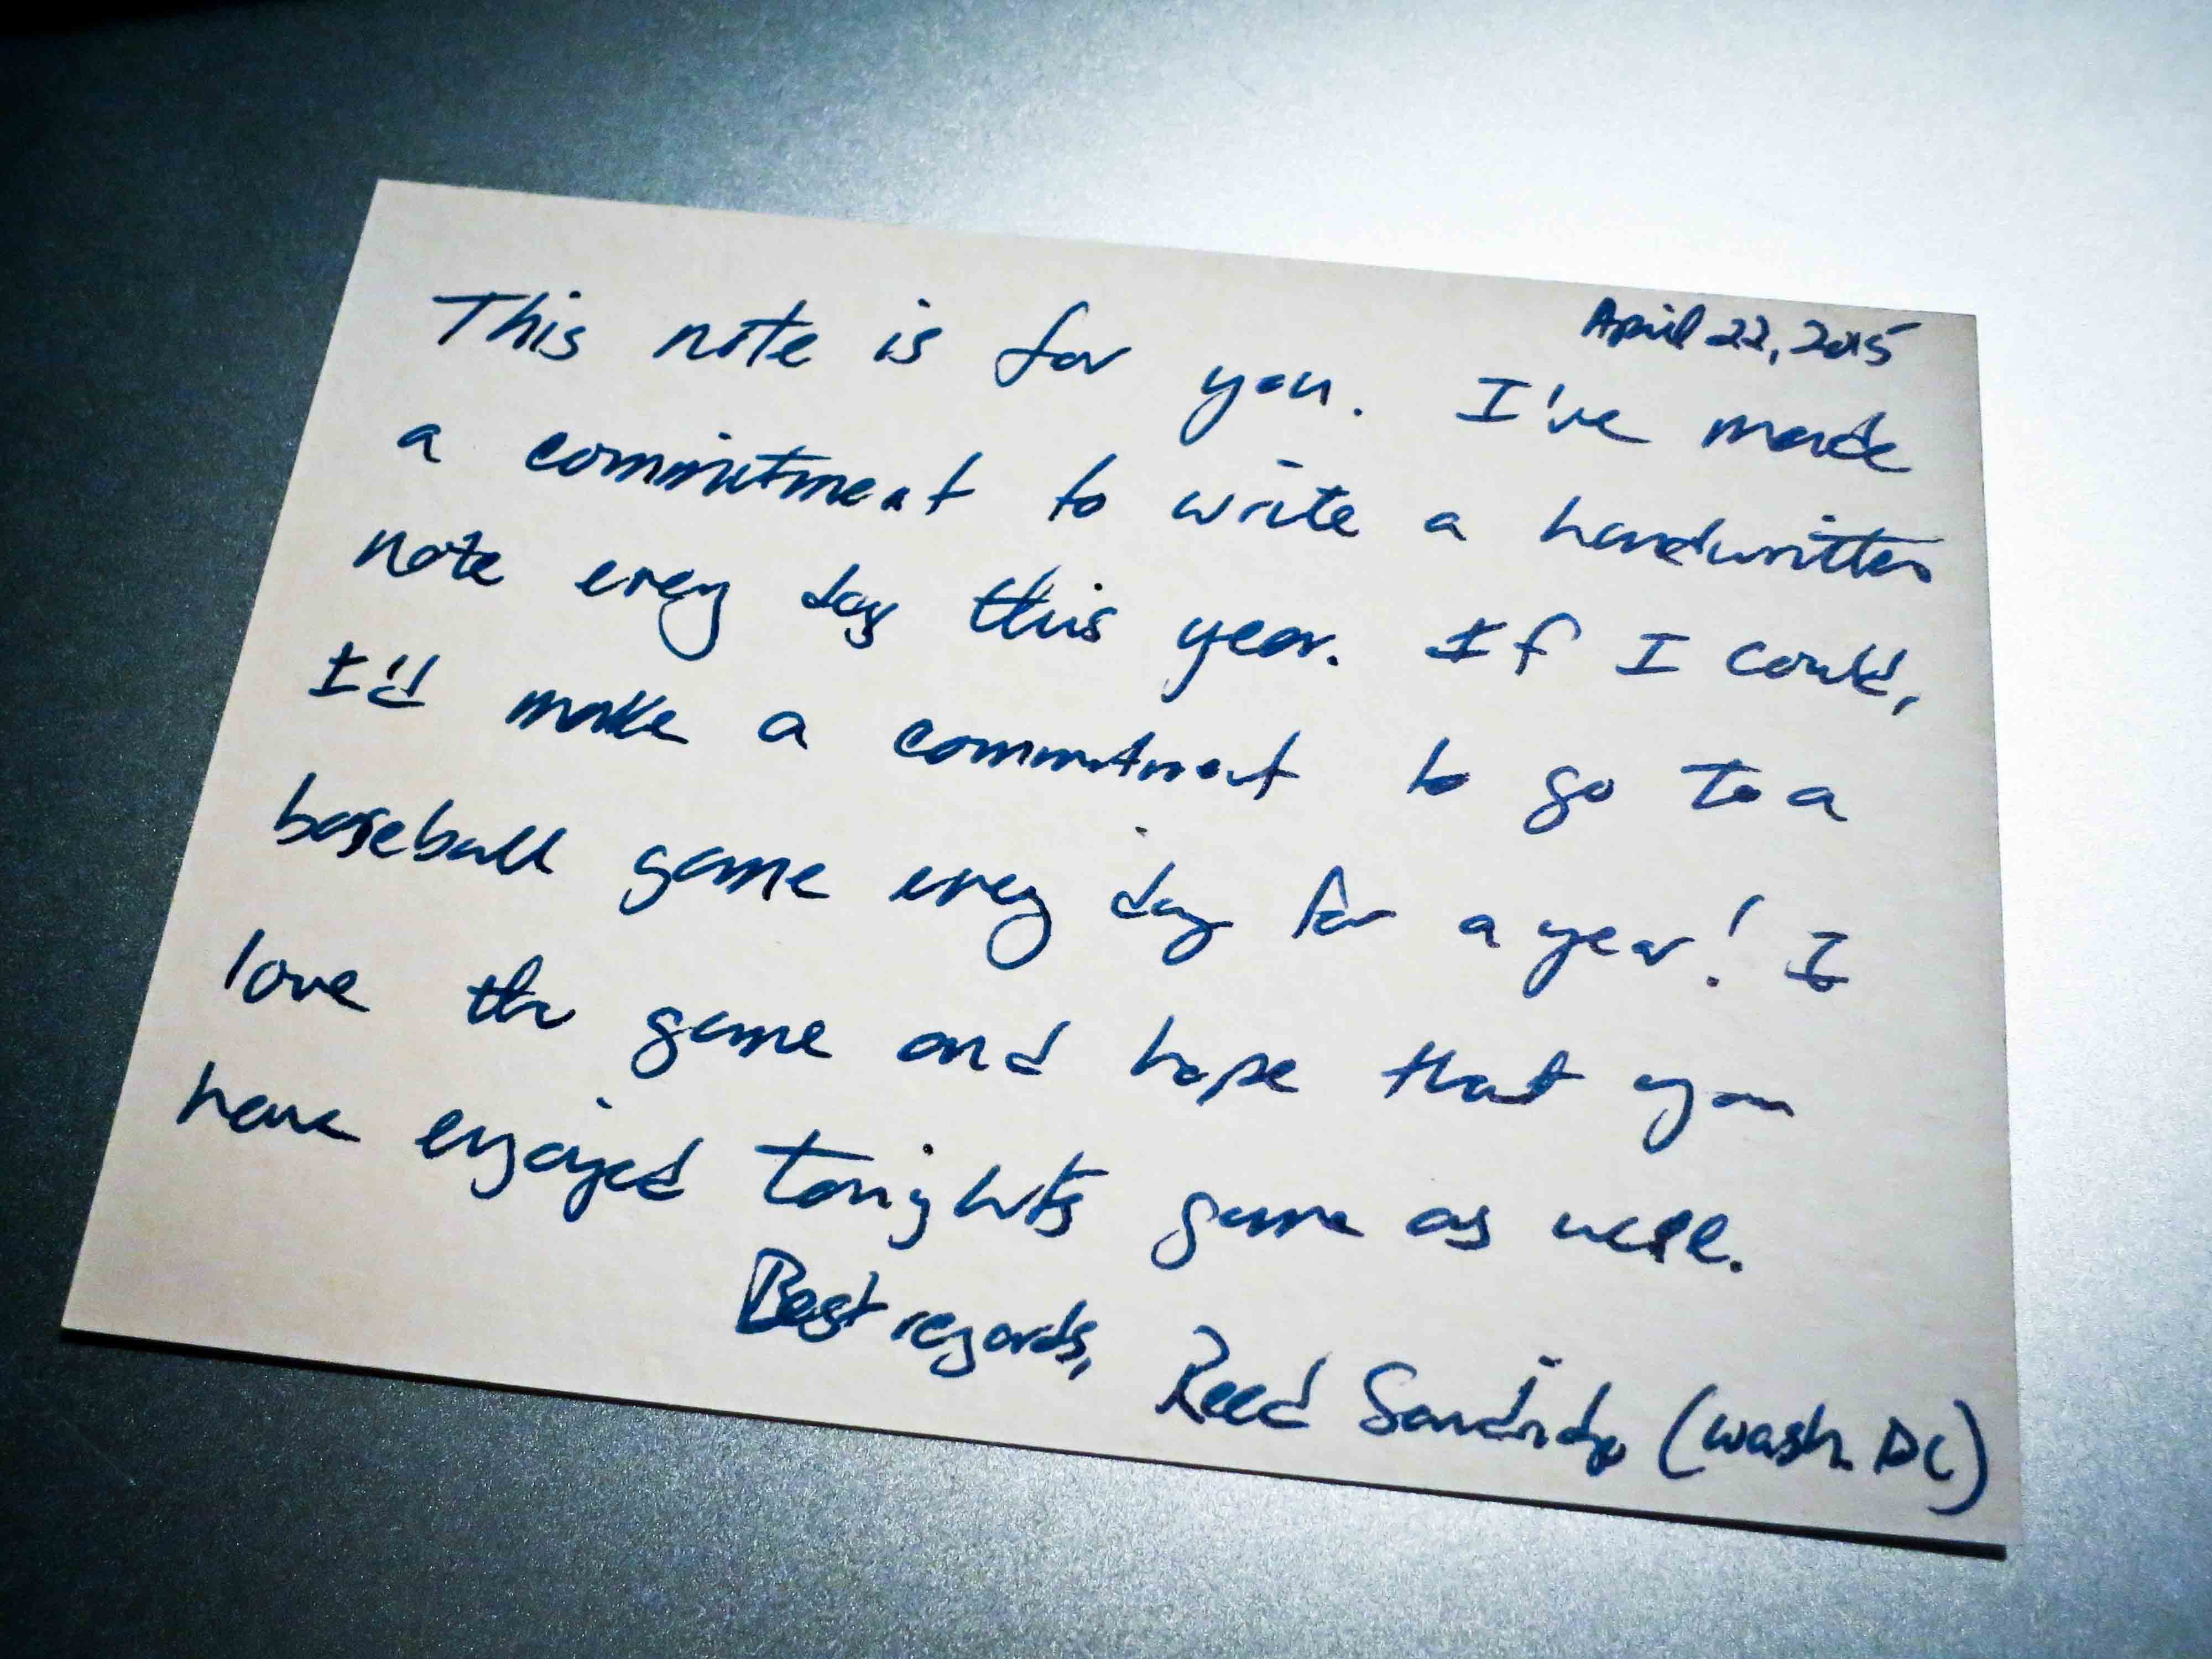 April 22, 2015
This note is for you. I've made
a commitment to write a handwritten
note every day this year. If I could,
I'd make a commitment to go to a
baseball game every day for a year! I
love the game and hope that you
have enjoyed tonights game as well.
Best regards,
Reed Sandridge (Wash. DC)